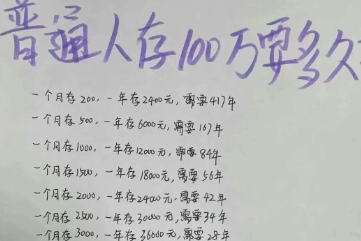 普通人存100万要多久
一个月存200,一年存2400元,需要417年
一个月存500,一年存6000元,需要167年
一个月存1000,一年存12000元,需要84年
一个月存1500,一年存18000元,需要56年
一个月存2000,一年存24000元,需要42年
一个月存2500,一年存30000元,需要34年
一个月存3000,一年存36000元,需要28年